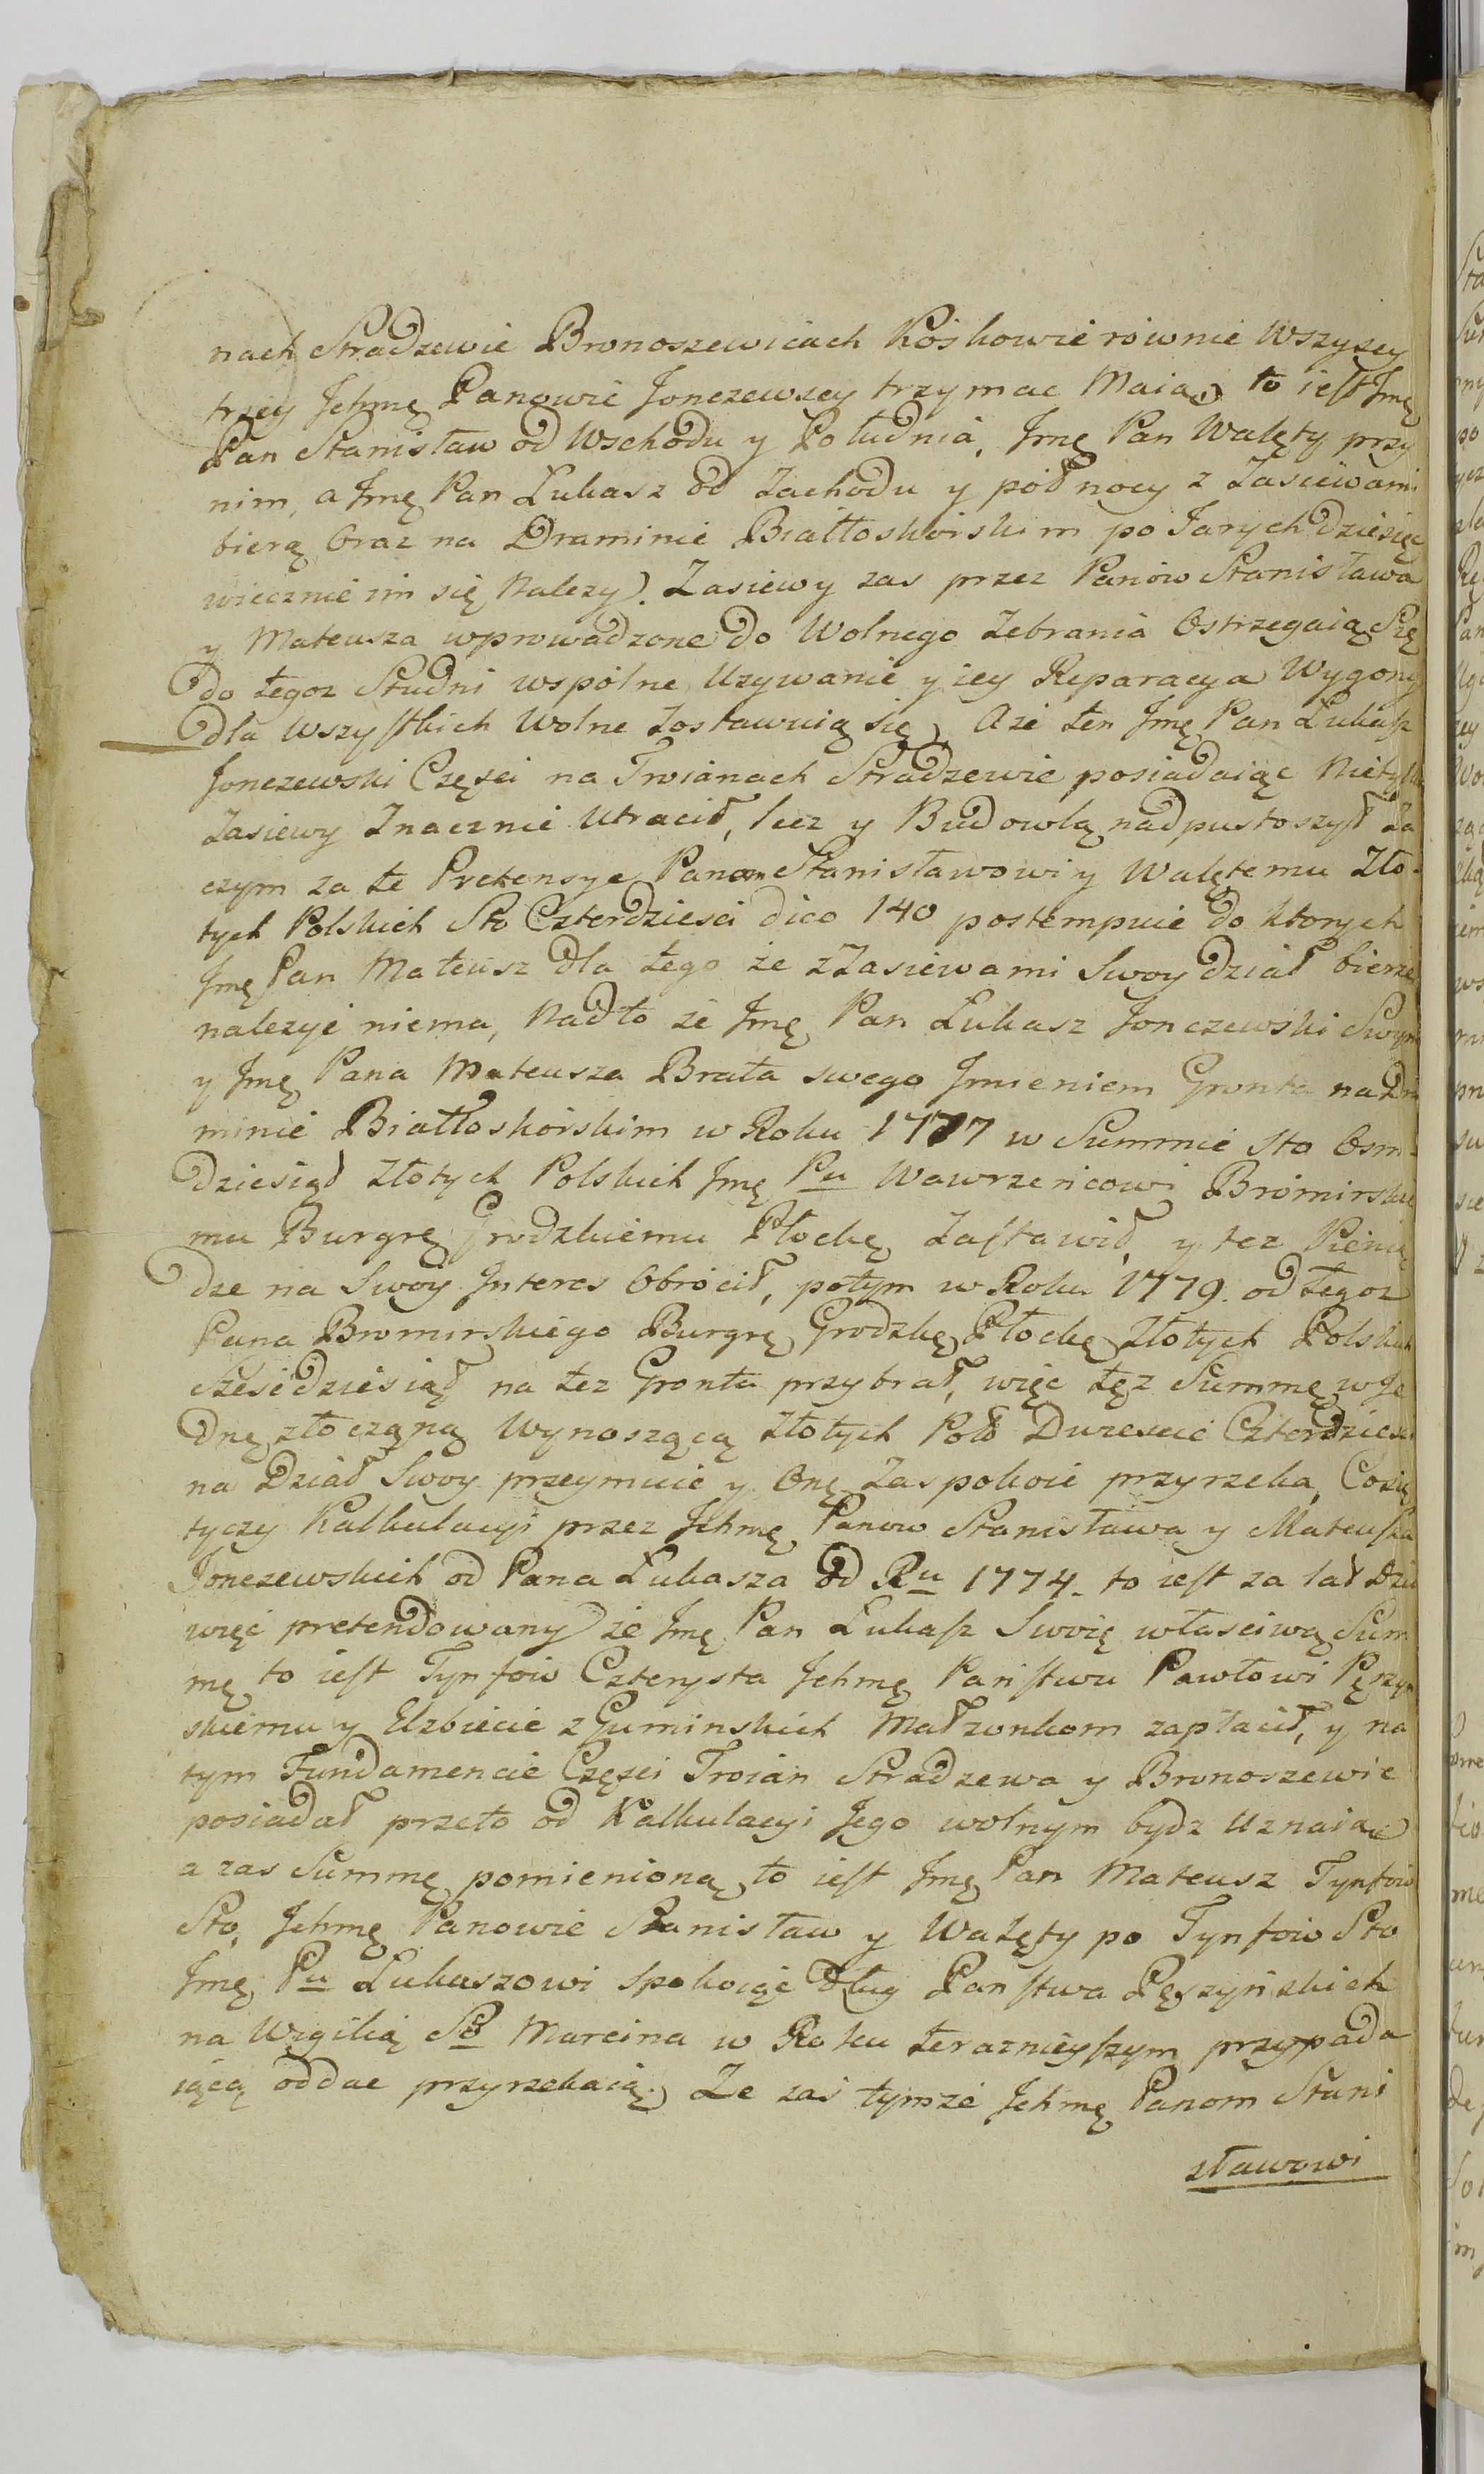 nach Stradzewie Bronoszewicach Kóskowie równie Wszyscy
trzey Jchmę Panowie Jonczewscy trzymac Maią, to iest Jmę
Pan Stanisław od Wschodu y Południa, Jmę Pan Walęty przy
nim, a Jmę Pan Łukasz od Zachodu y północy z Zasiewami
bierą Oraz na Draminie Białłoskórskim po Jarych dziesięc
wiecznie im się Nalezy). Zasiewy zas przez Panów Stanisława
y Mateusza wprowadzone do Wolnego Zebrania Ostrzegaią Się
do tegoz Studni wspólne Uzywanie y iey Reparacya Wygony
dla Wszystkich Wolne Zostawuią się, A że ten Jmę Pan Łukasz
Jonczewski Częsci na Troianach Stradzewie posiadaiąc Nietylko
Zasiewy Znacznie Utracił, lecz y Budowlą nadpustoszył Za
czym za te Pretensye Panom Stanisławowi y Walętemu Zło-
tych Polskich Sto Czterdziesci dico 140 postempuie do ktorych
Jmę Pan Mateusz dla tego że z Zasiewami Swoy dział bierze
nalezyć niema, Nadto że Jmę Pan Łukasz Jonczewski Swym
y Jmę Pana Mateusza Brata swego Jmieniem Gronta na Dra
minie Białłoskórskim w Roku 1777 w Summie sto Osm-
dziesiąd Złotych Polskich Jmę Pu Wawrzeńcowi Bromirskie
mu Burgrę Grodzkiemu Płockę Zastawił, y tez Pienią
dze na Swoy Jnteres Obrócił, potym w Roku 1779. od tegoz
Pana Bromirskiego Burgrę Grodzkę Płockę Złotych Polskich
Szesćdziesiąt na tez Gronta przybrał, więc tęz Summę w Je
dnę złocząną Wynoszącą Złotych Pols Dwiescie Czterdziesci
na Dział Swoy przeymuie y Onę Zaspokoić przyrzeka, Co się
tyczy Kalkulacyi przez Jchmę Panow Stanisława y Mateusza
Jonczewskich od Pana Łukasza od Ru 1774. to iest za lat Dzie
więć pretendowany) że Jmę Pan Łukasz Swoię własciwą Sum
mę to iest Tynfów Czterysta Jchmę Państwu Pawłowi Pęszyn
skiemu y Elzbiecie z Guminskich Małzonkom zapłacił, y na
tym Fundamencie Częsci Troian Stradzewa y Bronoszewic
posiadał przeto od Kalkulacyi Jego wolnym bydz Uznaiąc
a zas Summę pomienioną to iest Jmę Pan Mateusz Tynfów
Sto, Jchmę Panowie Stanisław y Walęty po Tynfów Sto
Jmę Pu Łukaszowi spokoiąc dług Państwa Pęszyńskich
na Wigilią So Marcina w Roku teraznieyszym przypada
iącą oddac przyrzekaią. Ze zaś tymże Jchmę Panom Stani
sławowi